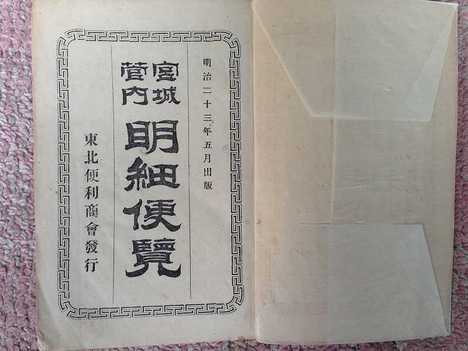 明治二十三年五月出版
宮城
管内
明細便覽
東北便利商會發行